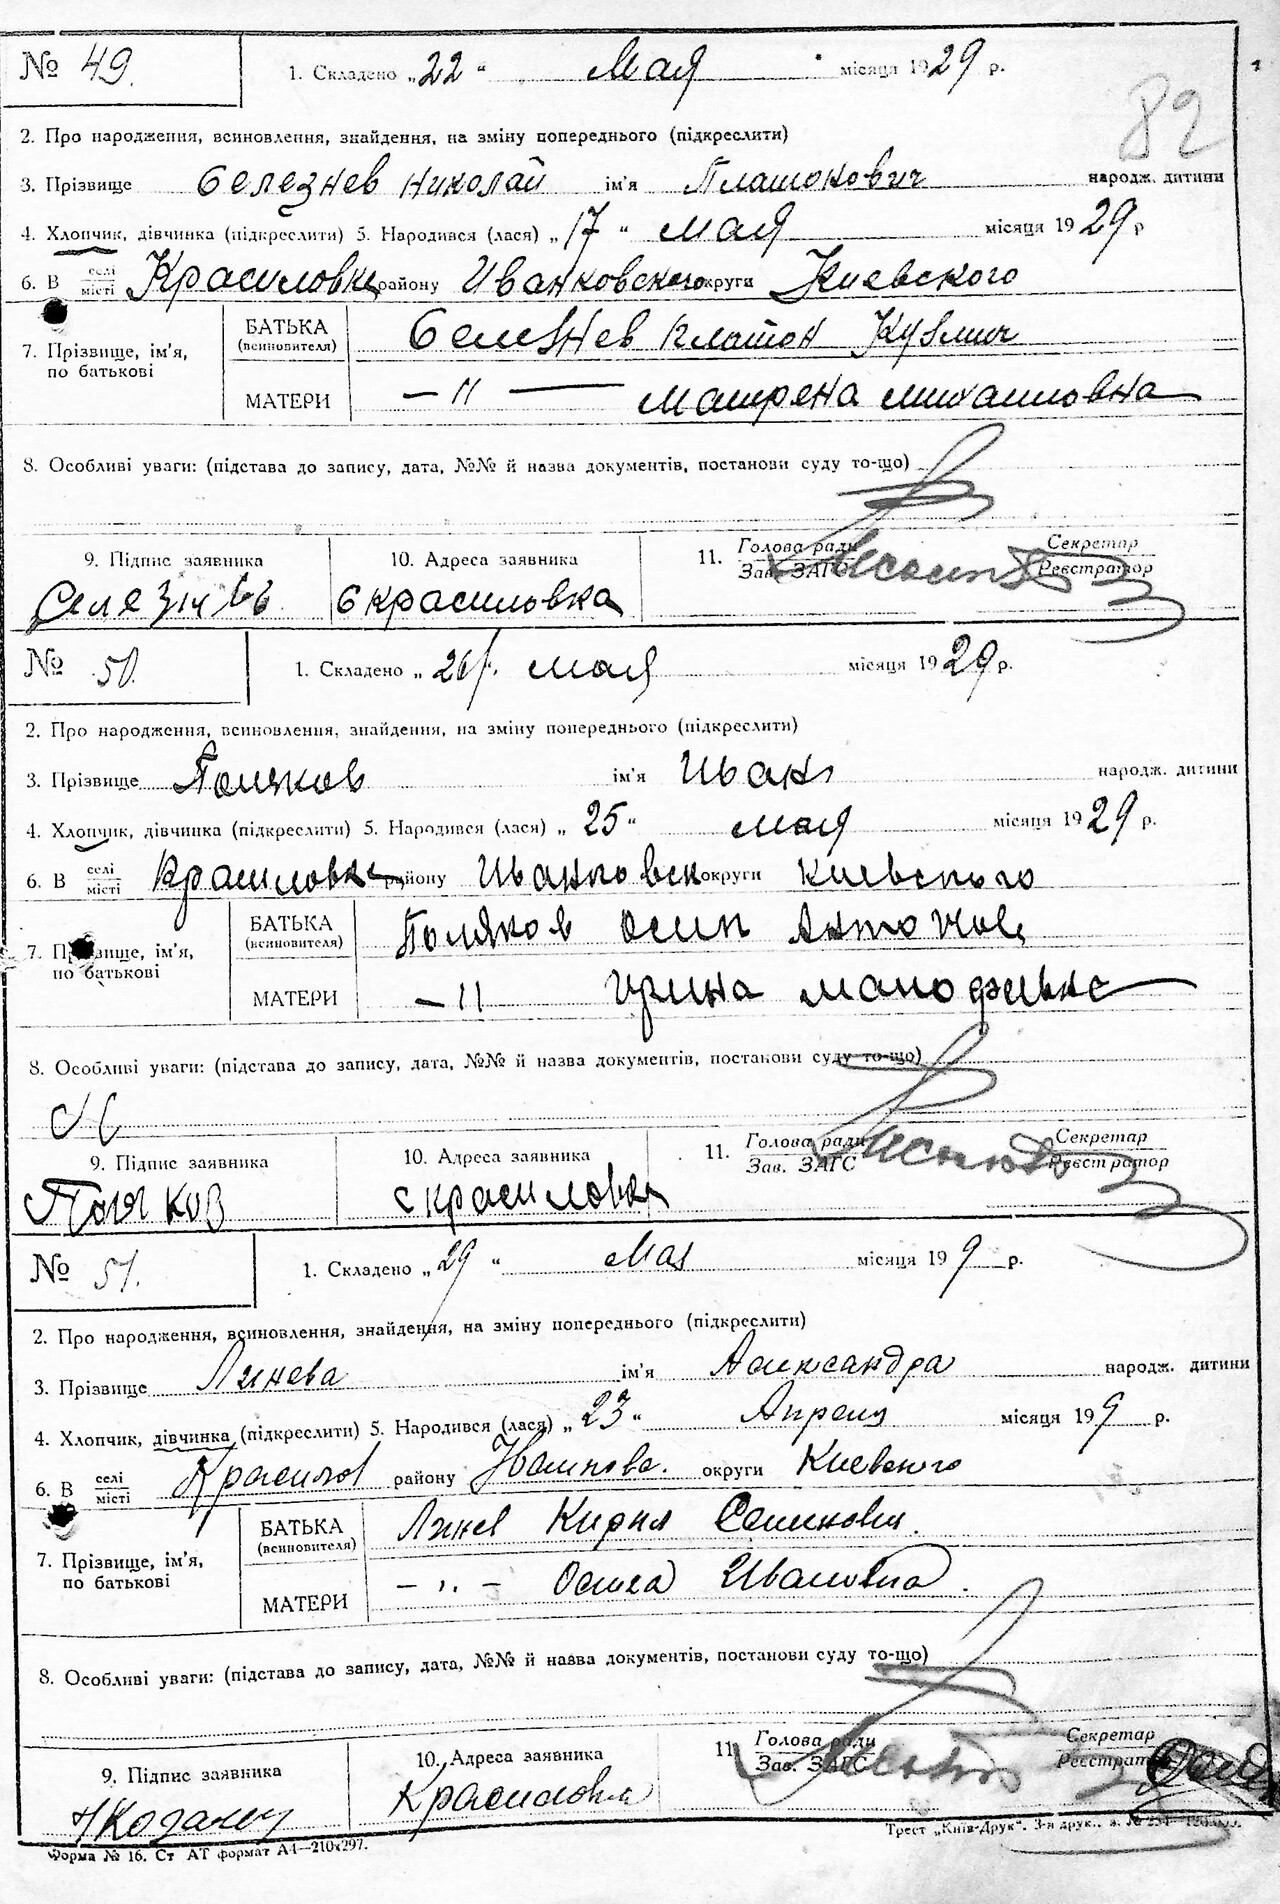 № 49. 1. Складено „22“ Мая місяця 1929 р.
82
2. Про народження, всиновлення, знайдення, на зміну попереднього (підкреслити)
3. Прізвище Селезнев Николай ім'я Платонович народж. дитини
4. Хлопчик, дівчинка (підкреслити) 5. Народився (лася) „17“ мая місяця 1929 р
6. В селі місті Красиловке району Иванковского округи Киевского
7. Прізвище, ім'я, по батькові
БАТЬКА (всиновителя) Селезнев Платон Кузмич
МАТЕРИ —〃— Матрена Михаиловна
8. Особливі уваги: (підстава до запису, дата, №№ й назва документів, постанови суду то-що)
9. Підпис заявника 10. Адреса заявника 11. Голова ради Зав. ЗАГС Секретар Реєстратор
с красиловка
№ 50. 1. Складено „26 мая місяця 1929 р.
2. Про народження, всиновлення, знайдення, на зміну попереднього (підкреслити)
3. Прізвище Поляков ім'я Иван народж. дитини
4. Хлопчик, дівчинка (підкреслити) 5. Народився (лася) „25“ мая місяця 1929 р.
6. В селі місті Красиловке району Иванковск округи Киевского
7. Прізвище, ім'я, по батькові
БАТЬКА (всиновителя) Поляков Осип Антонов
МАТЕРИ —〃 Ирина
8. Особливі уваги: (підстава до запису, дата, №№ й назва документів, постанови суду то-що)
9. Підпис заявника 10. Адреса заявника 11. Голова ради Зав. ЗАГС Секретар Реєстратор
Поляков с красиловка
№ 51. 1. Складено „29“ Мая місяця 19 9 р.
2. Про народження, всиновлення, знайдення, на зміну попереднього (підкреслити)
3. Прізвище Линева ім'я Александра народж. дитини
4. Хлопчик, дівчинка (підкреслити) 5. Народився (лася) „23“ Апреля місяця 19 9 р.
6. В селі місті Красилов району Иванков. округи Киевского
7. Прізвище, ім'я, по батькові
БАТЬКА (всиновителя) Линев Кирил
МАТЕРИ —〃— Ивановна.
8. Особливі уваги: (підстава до запису, дата, №№ й назва документів, постанови суду то-що)
9. Підпис заявника 10. Адреса заявника 11. Голова ради Зав. ЗАГС Секретар Реєстратор
Красиловка
Форма № 16. Ст АТ формат А4—210х297.
Трест „Київ-Друк“. 3-я друк.